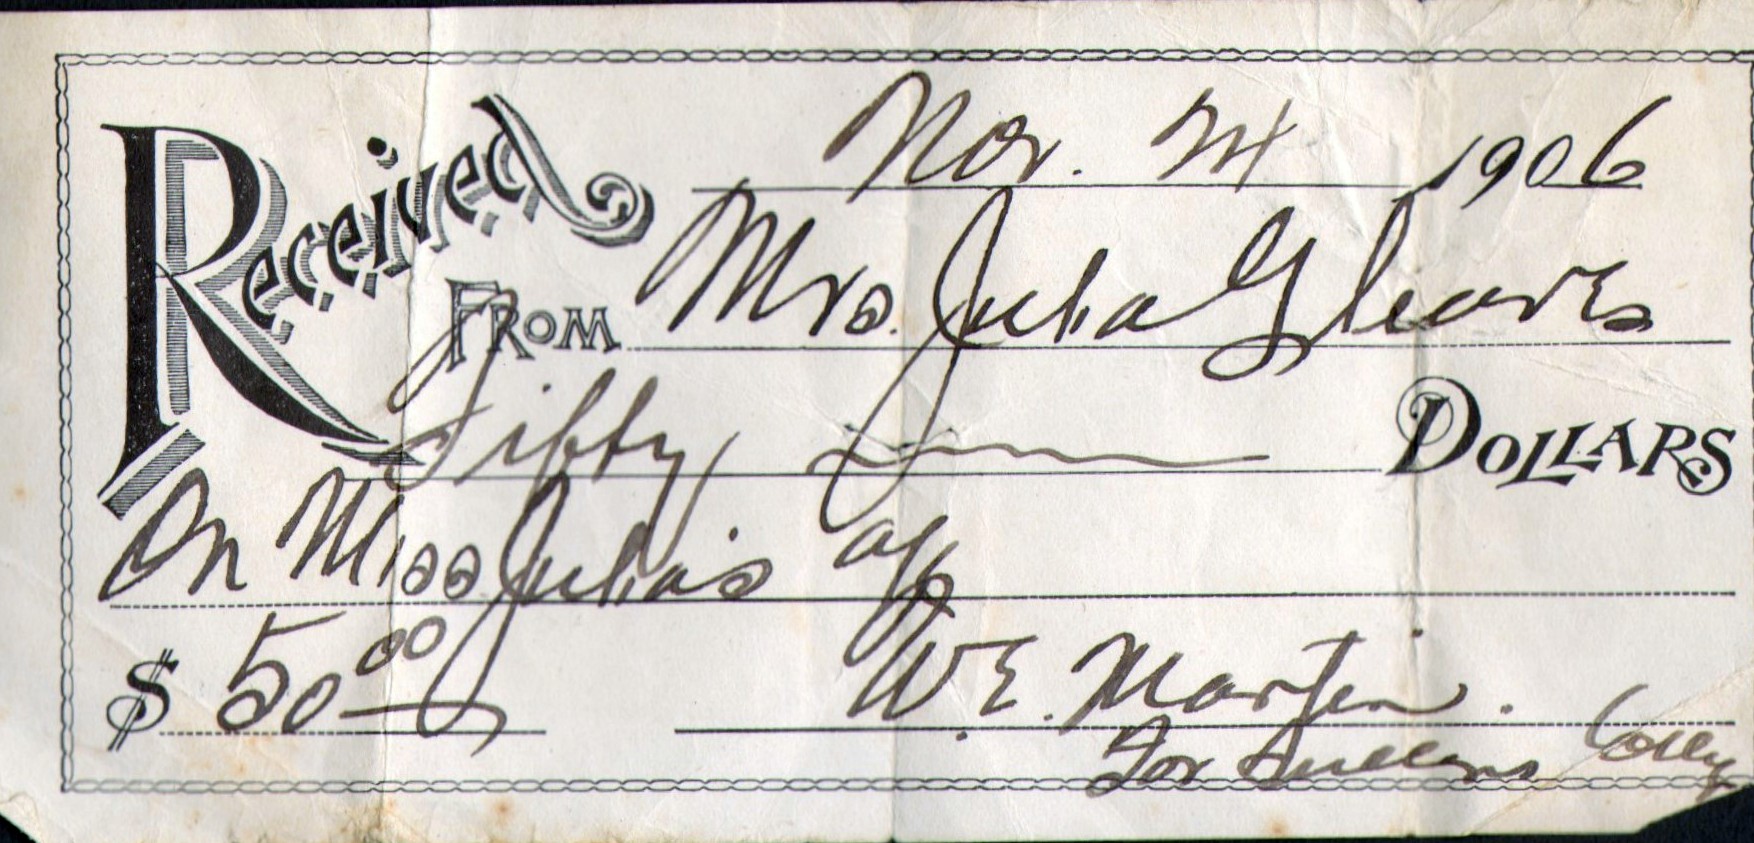 Nov. 24 1906
Received
From Mrs. Julia Gleaves
Fifty Dollars
On Miss Julia's a/c
$ 50 00
W.E. Martin.
For Sullins Colleg